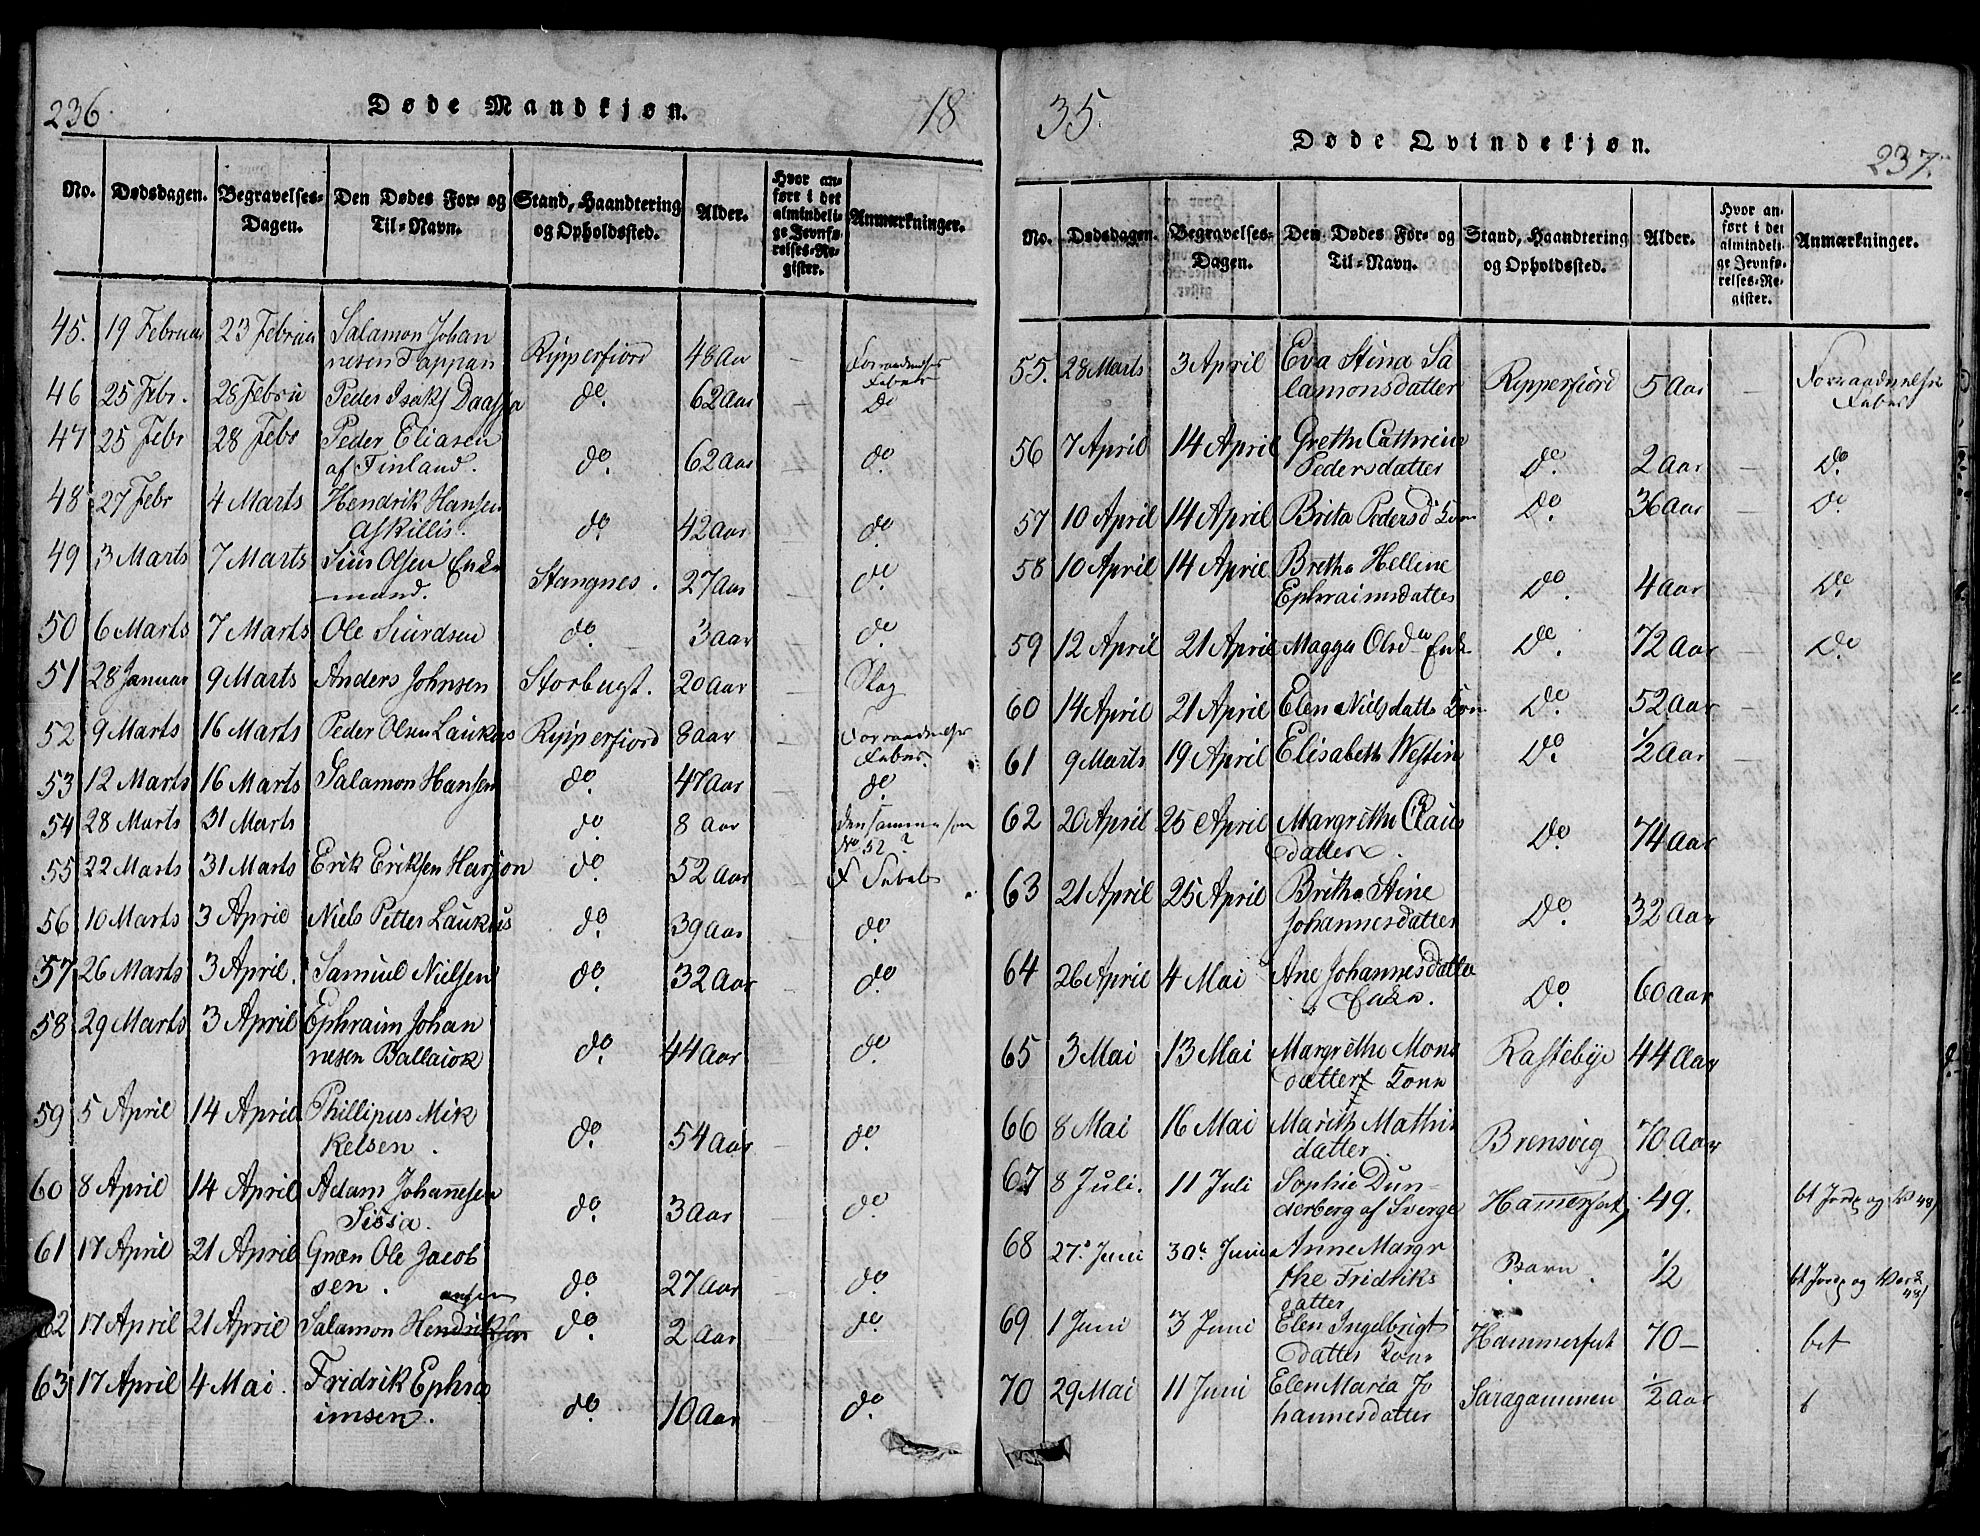 236.
Døde Mandkjøn.
18
No.
Dødsdagen.
Begravelses-
Dagen.
Den Dødes For- og
Til-Navn.
Stand, Haandtering
og Opholdssted.
Alder.
Hvor an-
ført i det
almindeli-
ge Jevnfø-
relses-Re-
gister.
Anmærkninger.
45. 19 Februar 23 Februa Salamon Johan
nesen Tappan Ripperfiord 48 Aar – Forraadnelses
Feber
46 25 Febr. 28 Febru Peder Isaks Daassa do. 62 Aar do
47 25 Febr 28 Febr Peder Eliasen
af Finland. do. 62 Aar do.
48 27 Febr 4 Marts Hendrik Hansen
Askillis. do 42 Aar do.
49 3 Marts 7 Marts Siur Olsen Enke
mand. Stangnes. 27 Aar do
50 6 Marts 7 Marts Ole Siurdsen do. 3 Aar do.
51 28 Januar 9 Marts Anders Johnsen Storbugt. 20 Aar – Slag
52 9 Marts 16 Marts Peder Olsen Laukus Ripperfiord 8 Aar Forraadnelses
Feber.
53 12 Marts 16 Marts Salamon Hansen do. 47 Aar do.
54 28 Marts 31 Marts do. 8 Aar den samme som
No 52?
55 22 Marts 31 Marts Erik Eriksen do. 52 Aar F Feber
56 10 Marts 3 April Niels Petter Laukus do. 39 Aar do.
57 26 Marts 3 April. Samuel Nielsen do. 32 Aar do.
58 29 Marts 3 April Ephraim Johan
nesen Ballaiok do. 44 Aar do.
59 5 April 14 April Phillipus Mik
kelsen. do. 54 Aar do.
60 8 April 14 April Adam Johannesen
Sissa. do. 3 Aar do.
61 17 April 21 April Gnæn Ole Jacob
sen. do. 27 Aar do.
ansen
62 17 April 21 April Salamon Hendriksen do. 2 Aar do.
63 17 April 4 Mai. Fridrik Ephra
imsen. do. 10 Aar do.
35.
Døde Qvindekjøn.
237.
No.
Dødsdagen.
Begravelses-
Dagen.
Den Dødes For- og
Til-Navn.
Stand, Haandtering
og Opholdssted.
Alder.
Hvor an-
ført i det
almindeli-
ge Jevnfø-
relses-Re-
gister.
Anmærkninger.
55. 28 Marts 3 April Eva Stina Sa
lamonsdatter Ripperfiord 5 Aar – Forraadnelses
Feber
56 7 April 14 April Grethe Cathrine
Pedersdatter do. 2 Aar – do.
57 10 April 14 April Brita Pedersd Kone do. 36 Aar – do.
58 10 April 14 April Bretha Hellene
Ephraimsdatter do. 4 Aar – do.
59 12 April 21 April Magga Olsda Enke do. 72 Aar – do.
60 14 April 21 April Elen Nielsdatter Kone do. 52 Aar –
61 9 Marts 19 April Elisabeth Westin do. 1/2 Aar –
62 20 April 25 April Margrethe Claus
datter. do. 74 Aar
63 21 April 25 April Britha Stine
Johannesdatter do. 32 Aar
64 26 April 4 Mai Ane Johannesdatter
Enke. do. 60 Aar
65 3 Mai 13 Mai Margrethe Mons
datter Kone Rastebye 44 Aar
66 8 Mai 16 Mai Marith Mathis
datter. Brensvig 70 Aar
67 8 Juli. 11 Juli Sophie Dun-
derberg af Sverge Hammerfest 49.
68 27. Juni 30. Juni Anne Margr
the Fridriks
datter Barn. 1/2
69 1 Juni 3 Juni Elen Ingelbrigt
datter Kone Hammerfest 70 – bet
70 29 Mai 11 Juni Elen Maria Jo
hannesdatter Saragammen 1/2 Aar b